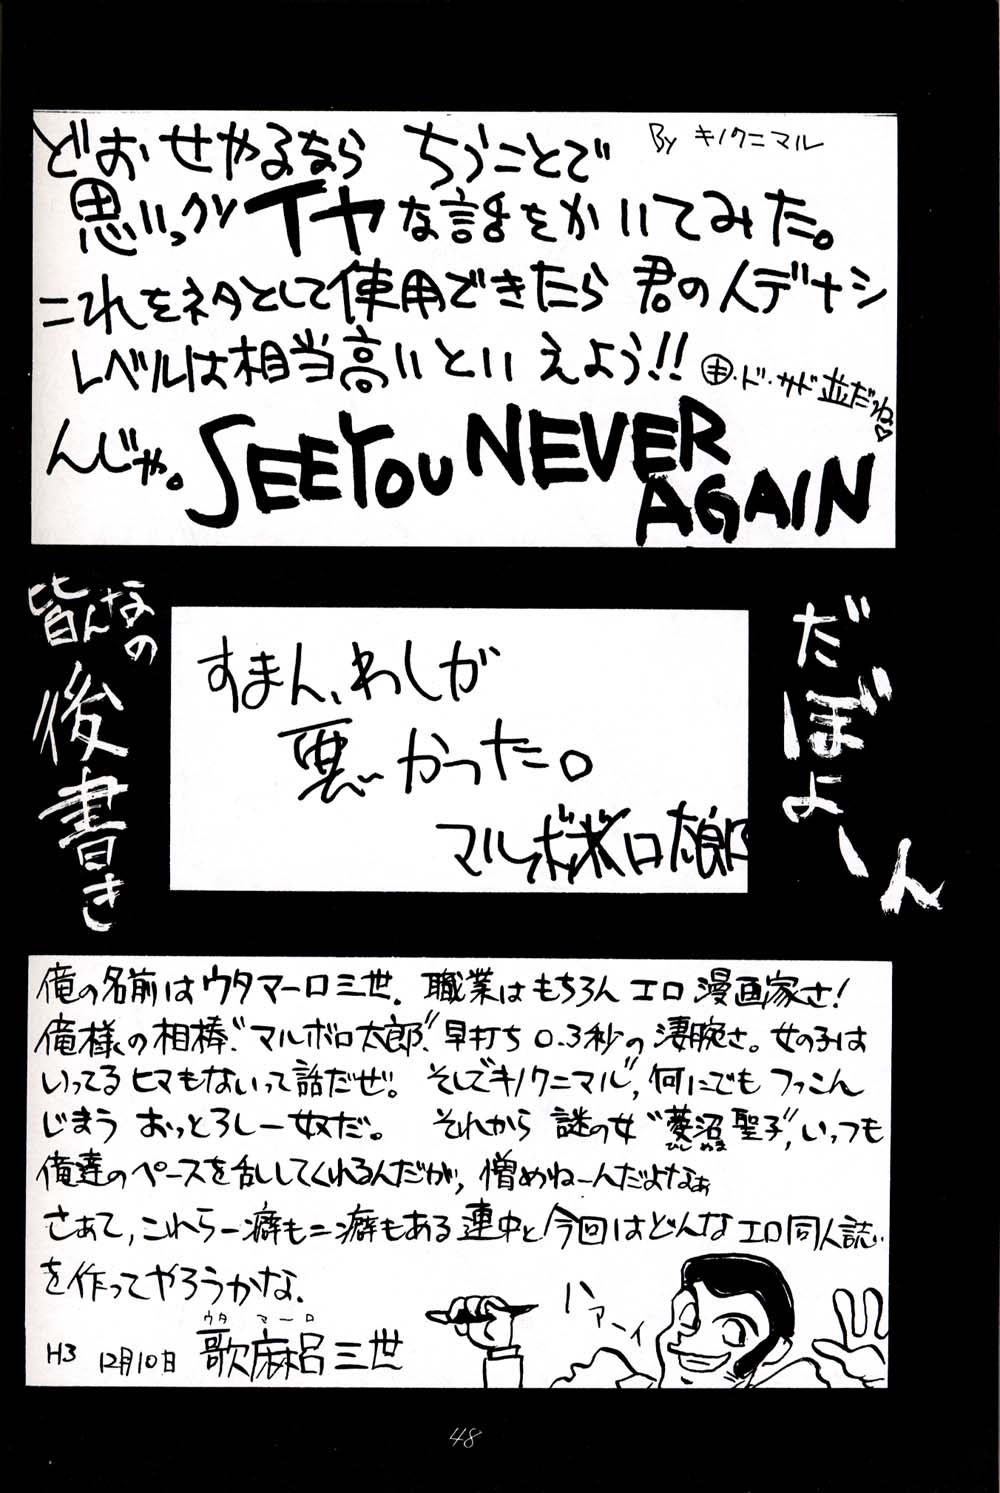 どおせやるなら ちうことで
By キノクニマル
思いっクソイヤな話をかいてみた。
これをネタとして使用できたら 君の人デナシ
レベルは相当高いといえよう!!
・ド・サド並だね♡
んじゃ。SEE YOU NEVER
AGAIN
皆んなの
後書き
だぼよーん
すまん、わしが
悪かった。
マルボロ太郎
俺の名前はウタマーロ三世. 職業はもちろん エロ漫画家さ!
俺様の相棒“マルボロ太郎”、早打ち0.3秒の凄腕さ。女の子は
いってるヒマもないって話だぜ。 そして“キノクニマル”, 何にでもつっこん
じまう おっとろしー奴だ。 それから 謎の女“菱沼聖子”, いっつも
ひし ぬま
俺達のペースを乱してくれるんだが, 憎めねーんだよなぁ
さあて, これら一癖も二癖もある連中と今回はどんなエロ同人誌
を作ってやろうかな.
ハァーイ
ウタ マーロ
H3 12月10日 歌麻呂三世
48